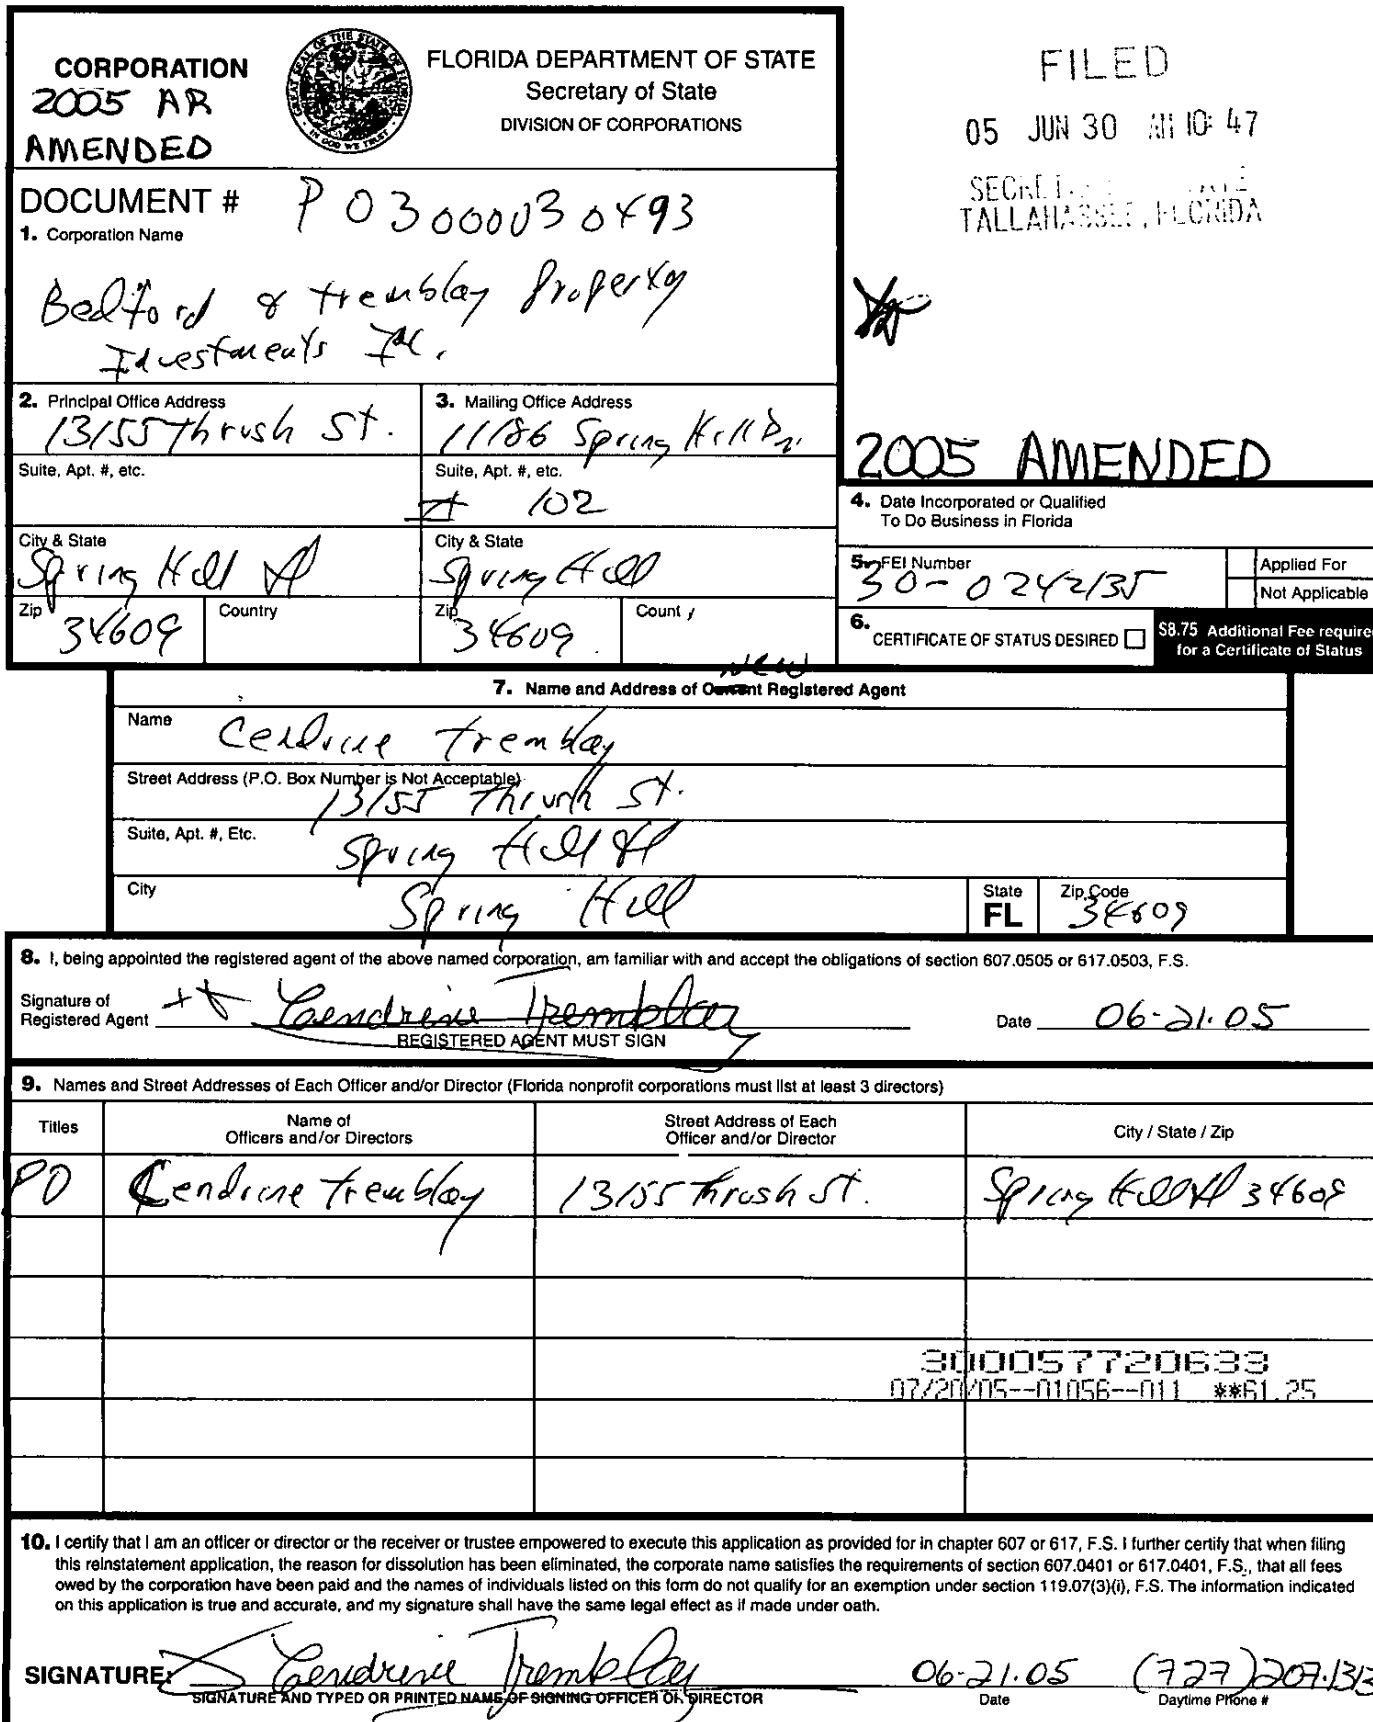 CORPORATION
2005 AR
AMENDED
GREAT SEAL OF THE STATE OF FLORIDA
IN GOD WE TRUST
FLORIDA DEPARTMENT OF STATE
Secretary of State
DIVISION OF CORPORATIONS
FILED
05 JUN 30 AM 10:47
TALLAHASSEE, FLORIDA
DOCUMENT # P03000030493
1. Corporation Name
Bedford & Tremblay Property
Investments Inc.
2. Principal Office Address
13155 Thrush St.
3. Mailing Office Address
11186 Spring Hill Dr.
Suite, Apt. #, etc.
Suite, Apt. #, etc.
# 102
City & State
Spring Hill Fl
City & State
Spring Hill
Zip
34609
Country
Zip
34609
Country
2005 AMENDED
4. Date Incorporated or Qualified
To Do Business in Florida
5. FEI Number
30-0242135
Applied For
Not Applicable
6. CERTIFICATE OF STATUS DESIRED
$8.75 Additional Fee require
for a Certificate of Status
NEW
7. Name and Address of Current Registered Agent
Name Cendrine Tremblay
Street Address (P.O. Box Number is Not Acceptable)
13155 Thrush St.
Suite, Apt. #, Etc. Spring Hill Fl
City Spring Hill
State
FL
Zip Code
34609
8. I, being appointed the registered agent of the above named corporation, am familiar with and accept the obligations of section 607.0505 or 617.0503, F.S.
Signature of
Registered Agent Cendrine Tremblay
Date 06-21.05
REGISTERED AGENT MUST SIGN
9. Names and Street Addresses of Each Officer and/or Director (Florida nonprofit corporations must list at least 3 directors)
Titles
Name of
Officers and/or Directors
Street Address of Each
Officer and/or Director
City / State / Zip
PD Cendrine Tremblay 13155 Thrush St. Spring Hill Fl 34609
300057720633
07/20/05--01056--011 **61.25
10. I certify that I am an officer or director or the receiver or trustee empowered to execute this application as provided for in chapter 607 or 617, F.S. I further certify that when filing
this reinstatement application, the reason for dissolution has been eliminated, the corporate name satisfies the requirements of section 607.0401 or 617.0401, F.S., that all fees
owed by the corporation have been paid and the names of individuals listed on this form do not qualify for an exemption under section 119.07(3)(i), F.S. The information indicated
on this application is true and accurate, and my signature shall have the same legal effect as if made under oath.
SIGNATURE: Cendrine Tremblay 06-21.05 (727)207.1313
SIGNATURE AND TYPED OR PRINTED NAME OF SIGNING OFFICER OR DIRECTOR
Date
Daytime Phone #